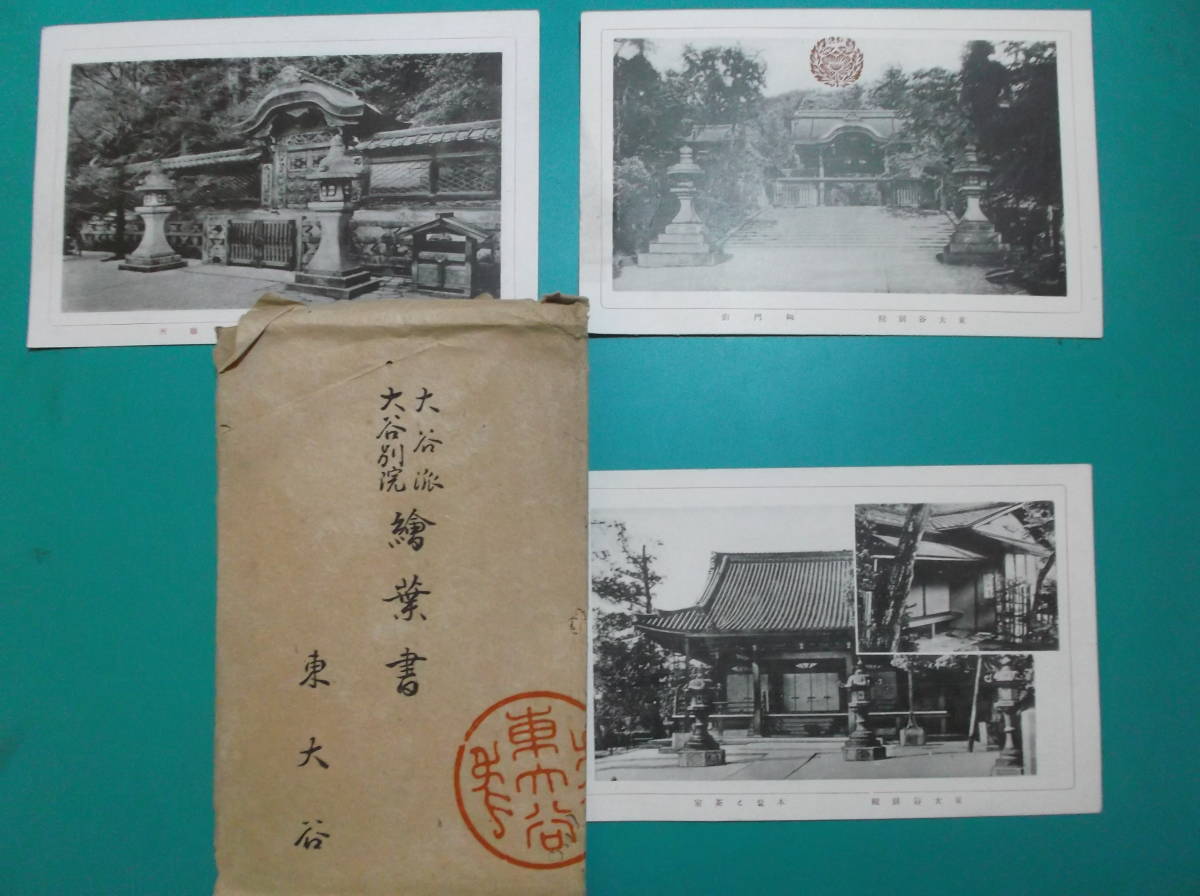 大谷派
大谷別院
繪葉書
東大谷
東大谷
東大谷別院
御門前
東大谷別院
本堂と茶室